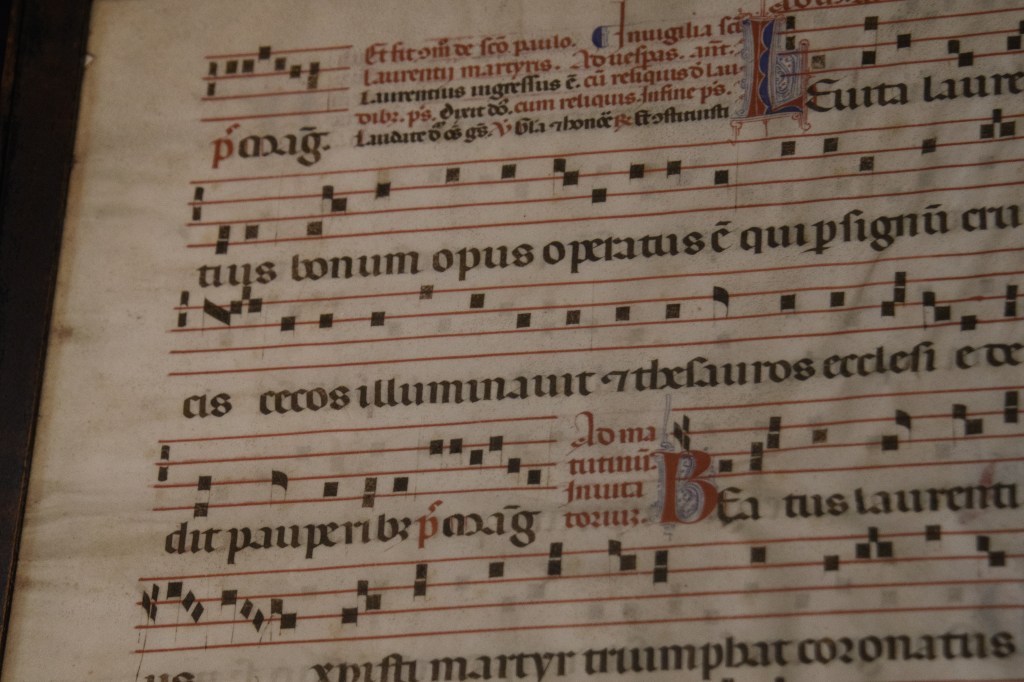 Et fit oīm de sc̄o paulo. Inuigilia sc̄i
laurentij martyris. Aduesp̄as. an̄t.
Laurentius ingressus ē. cū reliquis d̄ lau
dibꝫ. p̄s. Dixit dō. cum reliquis. Infine p̄s.
Laudate
p̄ mag̅. Leuita laure
tius bonum opus operatus ē qui ꝑ signū cru
cis cecos illuminauit ⁊ thesauros ecclesi e de
dit pauperibꝫ p̄ mag̅
Ad ma
tutinū
Inuita
toriuꝫ. Bea tus laurenti
us xpisti martyr triumphat coronatus